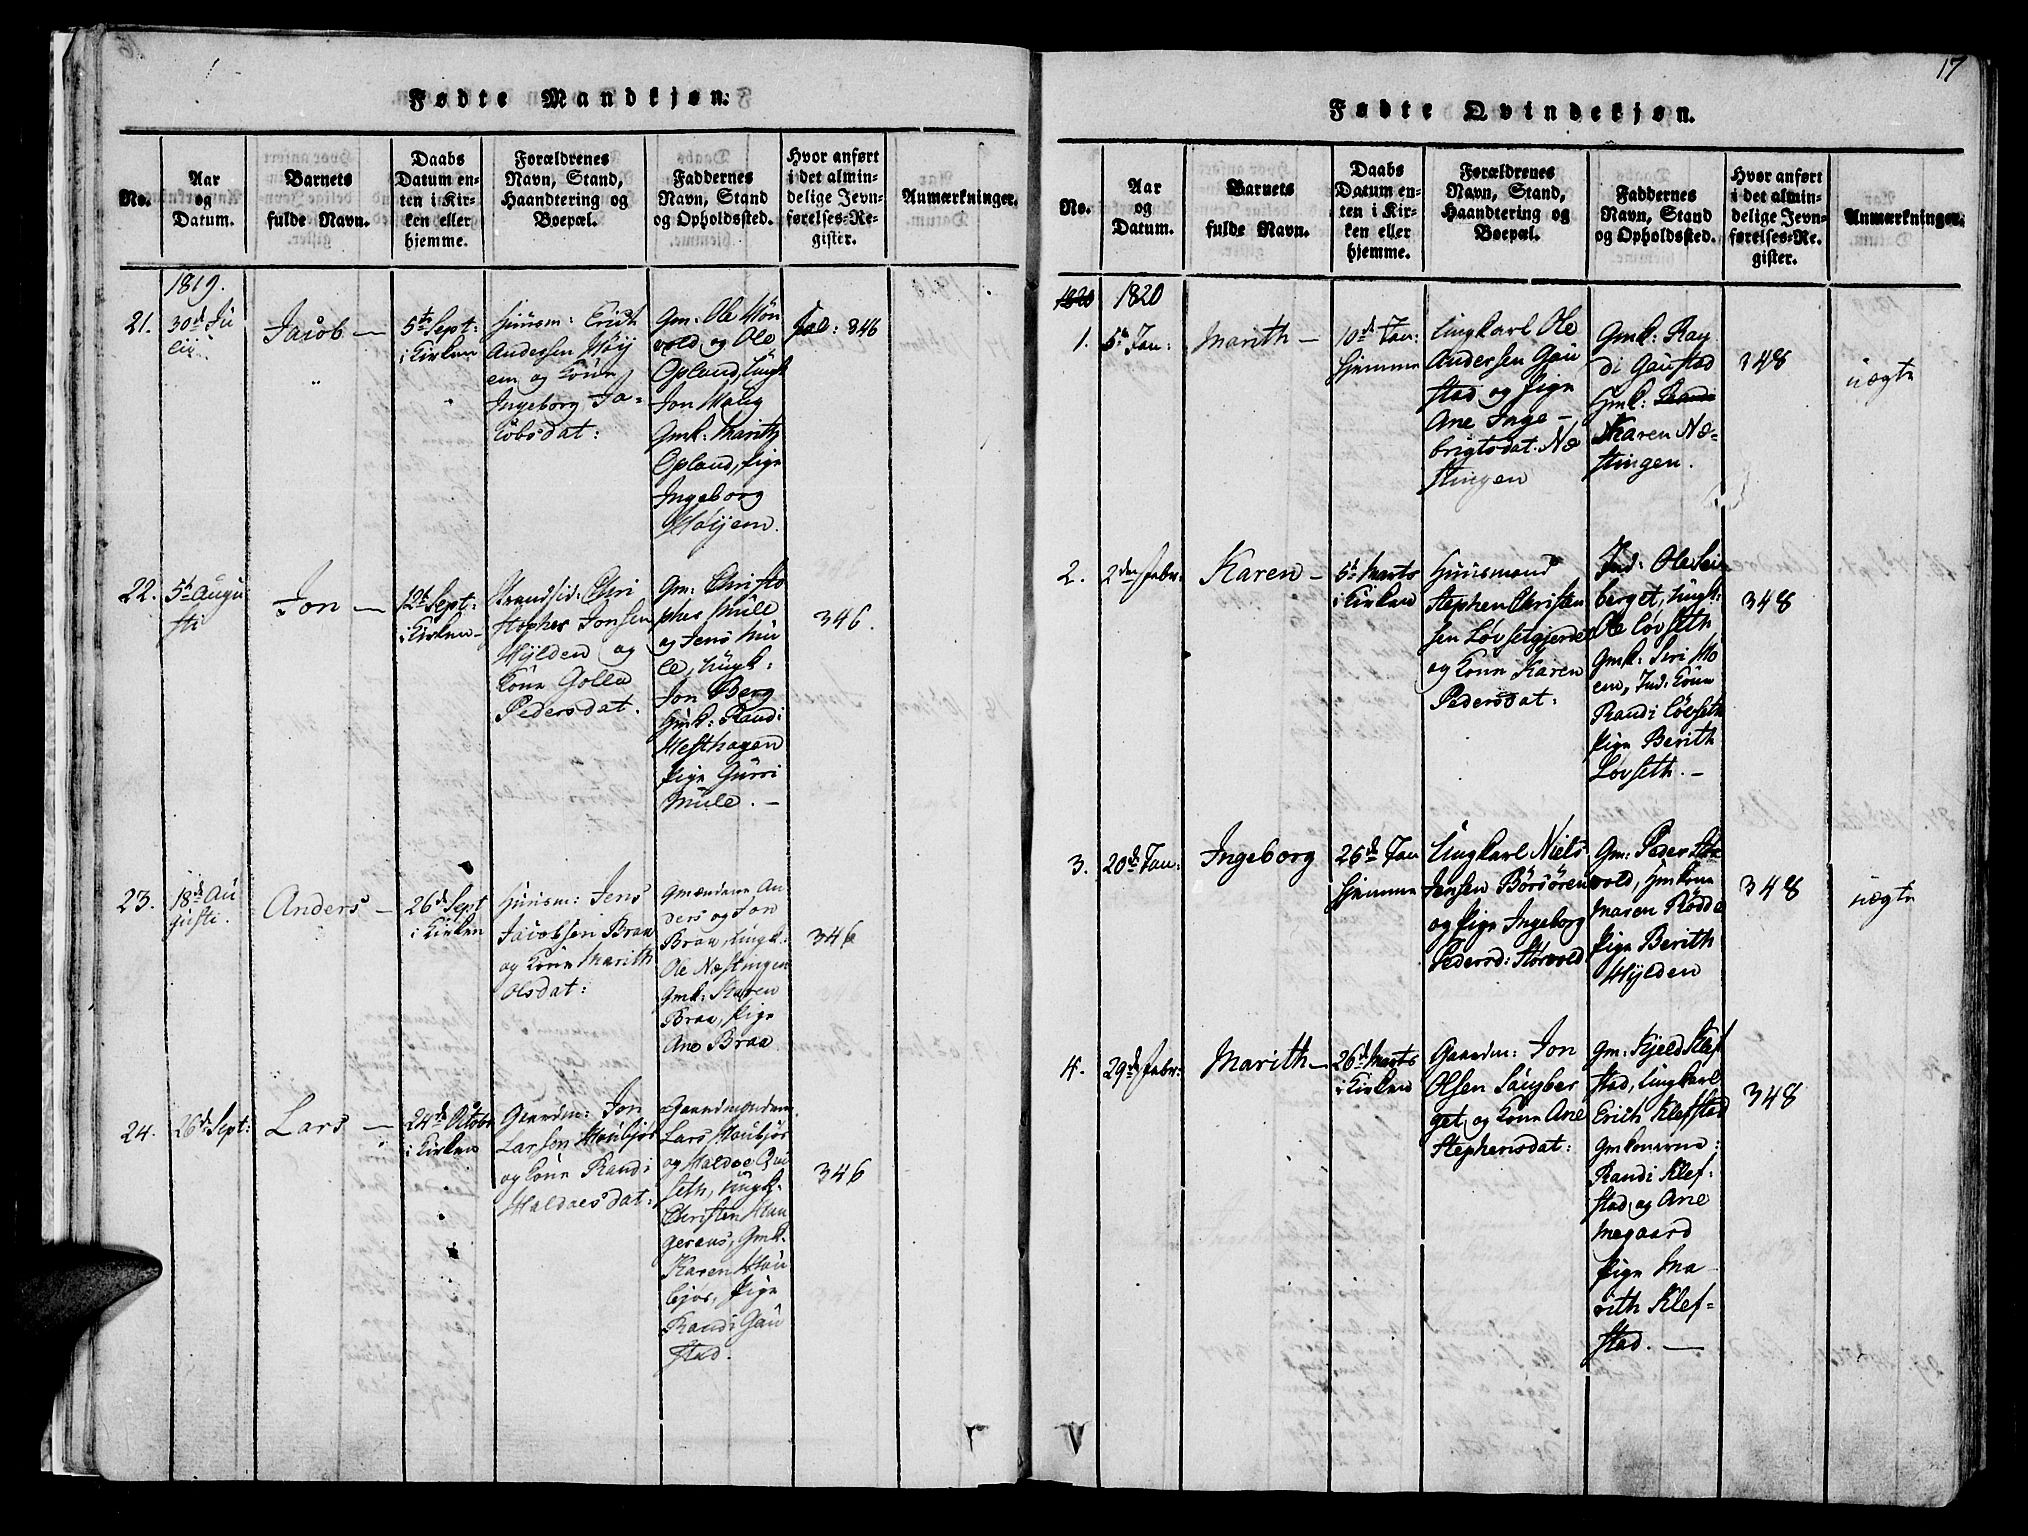 Fødte Mandkjøn.
No.
Aar
og
Datum.
Barnets
fulde Navn.
Daabs
Datum en-
ten i Kir-
ken eller
hjemme.
Forældrenes
Navn, Stand,
Haandtering og
Boepæl.
Faddernes
Navn, Stand
og Opholdssted.
Hvor anført
i det almin-
delige Jevn-
førelses-Re-
gister.
Anmærkninger.
1819.
21.
30d Ju
lii
Jacob —
5th Sept:
i Kirken
Huusm: Erich
Andersen Høij
em og Kone
Ingeborg Ja-
kobsdat:
Gm: Ole Møn
vold og Ole
Opland, Ungk
Jon Houg
Gmk: Marith
Opland, Pige
Ingeborg
Høijem.
Fol: 346
22.
5th Augu
sti
Jon —
12t Sept:
i Kirken
Strandsid: Chri
stopher Jonsen
Hylden og
Kone Golla
Pedersdat.
Gm: Christo
pher Mule
og Jens Mu
le, Ungk:
Jon Berg
Gmk: Randi
Hesthagen
Pige Gurri
Mule. —
346.
23.
18d Au
gusti.
Anders —
26d Sept
i Kirken
Huusm: Jens
Jacobsen Braa
og Kone Marith
Olsdat:
Gmændene An
ders og Jon
Braa, Ungk:
Ole Næstingen
Gmk: Karen
Braa, Pige
Ane Braa
346
24.
26d Sept:
Lars —
24d Octobr
i Kirken
Gaardm: Jon
Larsen Houbjør
og Kone Randi
Haldoesdat:
Gaardmændene
Lars Houbjør
og Haldoe
seth, Ungk.
Christen Hau
gerans, Gmk.
Karen Hou
bjør, Pige
Randi Gau
stad.
346
17
Fødte Qvindekjøn.
No.
Aar
og
Datum.
Barnets
fulde Navn.
Daabs
Datum en-
ten i Kir-
ken eller
hjemme.
Forældrenes
Navn, Stand,
Haandtering og
Boepæl.
Faddernes
Navn, Stand
og Opholdssted.
Hvor anført
i det almin-
delige Jevn-
førelses-Re-
gister.
Anmærkninger.
1820
1820
1.
5th Jan:
Marith —
10d Jan:
hjemme
Ungkarl Ole
Andersen Gau
stad og Pige
Ane Inge-
brigtsdat. Næ
stingen
Gmk: Ran
di Gaustad
Gmk: Randi
Karen Næ-
stingen.
348
uægte
2.
2den Febr:
Karen —
5t Marts
i Kirken
Huusmand
Stephen Christen
sen Løvsetgjerdet
og Kone Karen
Pedersdat:
Ind: Ole Sau
berget, Ungk:
Ole Løvseth
Gmk: Seri Mo
em, Ind: Kone
Randi Løvseth
Pige Berith
Løvseth. —
348
3.
20d Jan:
Ingeborg
26d Jan
hjemme
Ungkarl Niels
Jensen Börsören
og Pige Ingeborg
Pedersd: Storvold
Gm: Peder Stor
vold, Gmkone
Maren Rödde
Pige Berith
Hylden
348
uægte
4.
29d Febr:
Marith —
26d Marts
i Kirken
Gaardm: Jon
Olsen Saugber
get og Kone Ane
Stephensdat:
Gm: Kjeld Klef
stad, Ungkarl
Erich Klefstad
Gmkonerne:
Randi Klef-
stad og Ane
Megaard
Pige Ma-
rith Klef-
stad. —
348